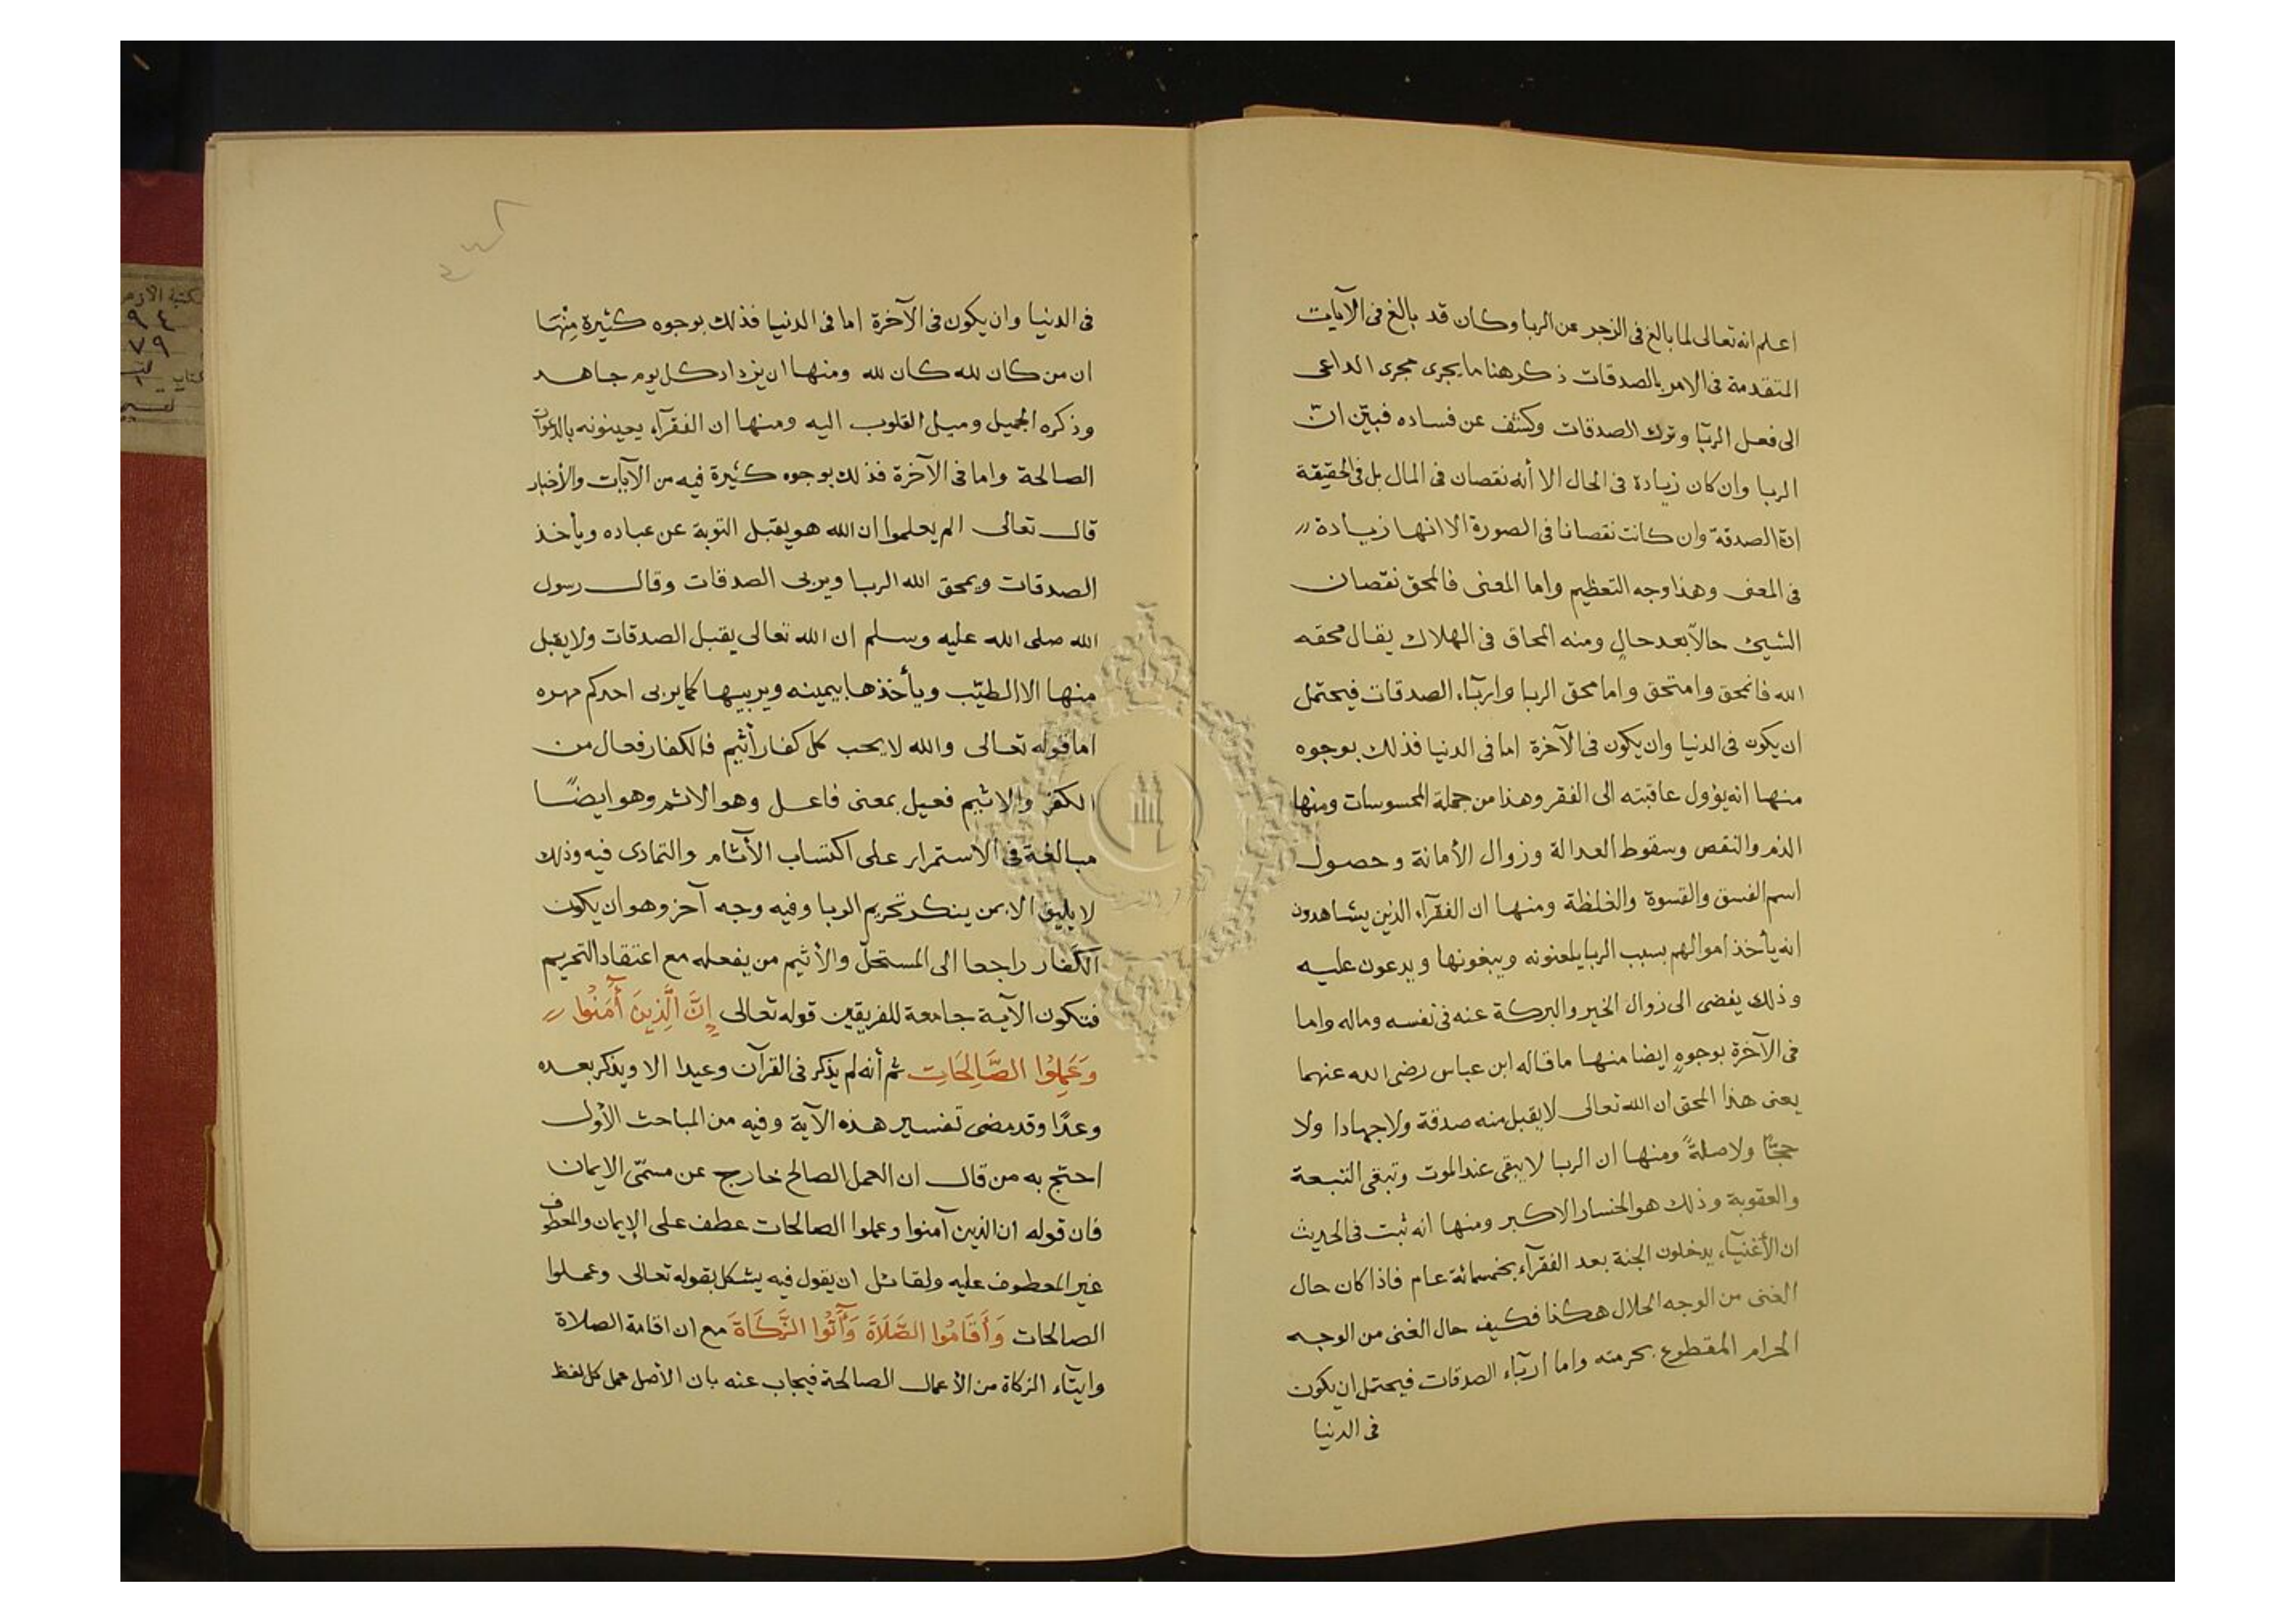 اعلم انه تعالى لما بالغ فى الزجر عن الربا وكان قد بالغ فى الآيات
المتقدمة فى الامر بالصدقات ذكر هنا ما يجرى مجرى الداعى
الى فعل الربا وترك الصدقات وكشف عن فساده فبيّن انّ
الربا وان كان زيادة فى الحال الا أنه نقصان فى المال بل فى الحقيقة
انّ الصدقة وان كانت نقصانا فى الصورة الا انها زيادة
فى المعنى وهذا وجه التعظيم واما المعنى فالمحق نقصان
الشيئ حالاً بعد حالٍ ومنه المحاق فى الهلاك يقال محقه
الله فانمحق وامتحق واما محق الربا وارباء الصدقات فيحتمل
ان يكون فى الدنيا وان يكون فى الآخرة اما فى الدنيا فذلك بوجوه
منها انه يؤول عاقبته الى الفقر وهذا من جملة المحسوسات ومنها
الذم والنقص وسقوط العدالة وزوال الأمانة وحصول
اسم الفسق والقسوة والغلظة ومنها ان الفقرآء الذين يشاهدون
انه يأخذ اموالهم بسبب الربا يلعنونه ويبغونها ويدعون عليه
وذلك يفضى الى زوال الخير والبركة عنه فى نفسه وماله واما
فى الآخرة بوجوهٍ ايضا منها ما قاله ابن عباس رضى الله عنهما
يعنى هذا المحق ان الله تعالى لا يقبل منه صدقة ولا جهادا ولا
حجّاً ولا صلةً ومنها ان الربا لا يبقى عند الموت وتبقى التبعة
والعقوبة وذلك هو الخسار الاكبر ومنها انه ثبت فى الحديث
ان الأغنيآء يدخلون الجنة بعد الفقرآء بخمسمائة عام فاذا كان حال
الغنى من الوجه الحلال هكذا فكيف حال الغنى من الوجه
الحرام المقطوع بحرمته واما ارباء الصدقات فيحتمل ان يكون
فى الدنيا
فى الدنيا وان يكون فى الآخرة اما فى الدنيا فذلك بوجوه كثيرة مِنْهَا
ان من كان لله كان لله ومنها ان يزداد كل يوم جاهه
وذكره الجميل وميل القلوب اليه ومنها ان الفقرآء يعينونه بالدعوات
الصالحة واما فى الآخرة فذلك بوجوه كثيرة فيه من الآيات والأخبار
قال تعالى الم يعلموا ان الله هو يقبل التوبة عن عباده ويأخذ
الصدقات ويمحق الله الربا ويربى الصدقات وقال رسول
الله صلى الله عليه وسلم ان الله تعالى يقبل الصدقات ولا يقبل
منها الا الطيّب ويأخذها بيمينه ويربيها كما يربى احدكم مهره
اما قوله تعالى والله لا يحب كل كفار أثيم فالكفار فعال من
الكفر والاثيم فعيل بمعنى فاعل وهو الاثم وهو ايضًا
مبالغة فى الاستمرار على اكتساب الأثام والتمادى فيه وذلك
لا يليق الا بمن ينكر تحريم الربا وفيه وجه آخر وهو ان يكون
الكفار راجعا الى المستحلّ والأثيم من يفعله مع اعتقاد التحريم
فتكون الآية جامعة للفريقين قوله تعالى إِنَّ الَّذِينَ آمَنُوا
وَعَمِلُوا الصَّالِحَاتِ ثم أنه لم يذكر فى القرآن وعيدا الا ويذكر بعده
وعدًا وقد مضى تفسير هذه الآية وفيه من المباحث الأول
احتج به من قال ان العمل الصالح خارج عن مسمّى الايمان
فان قوله ان الذين آمنوا وعملوا الصالحات عطف على الإيمان والمعطوف
غير المعطوف عليه ولقائل ان يقول فيه يشكل بقوله تعالى وعملوا
الصالحات وَأَقَامُوا الصَّلَاةَ وَآتَوُا الزَّكَاةَ مع ان اقامة الصلاة
وايتآء الزكاة من الأعمال الصالحة فيجاب عنه بان الأصل حمل كل لفظ